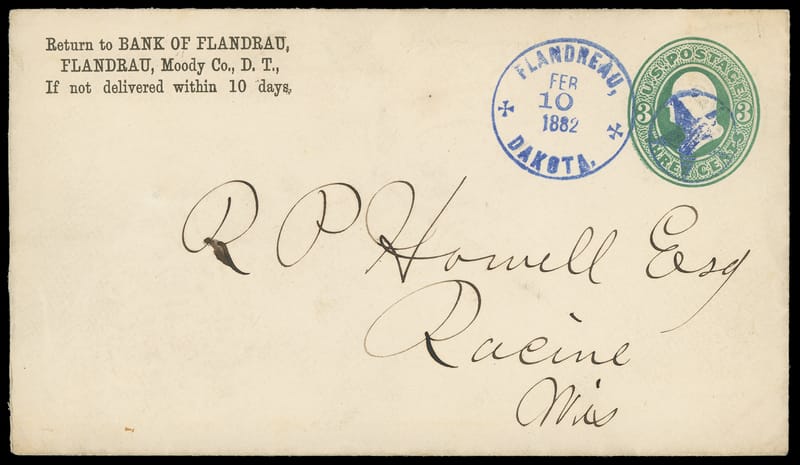 Return to BANK OF FLANDRAU,
FLANDRAU, Moody Co., D. T.,
If not delivered within 10 days,
FLANDREAU,
FEB
10
1882
DAKOTA.
U.S. POSTAGE
3 3
THREE CENTS
R P Howell Esq
Racine
Wis